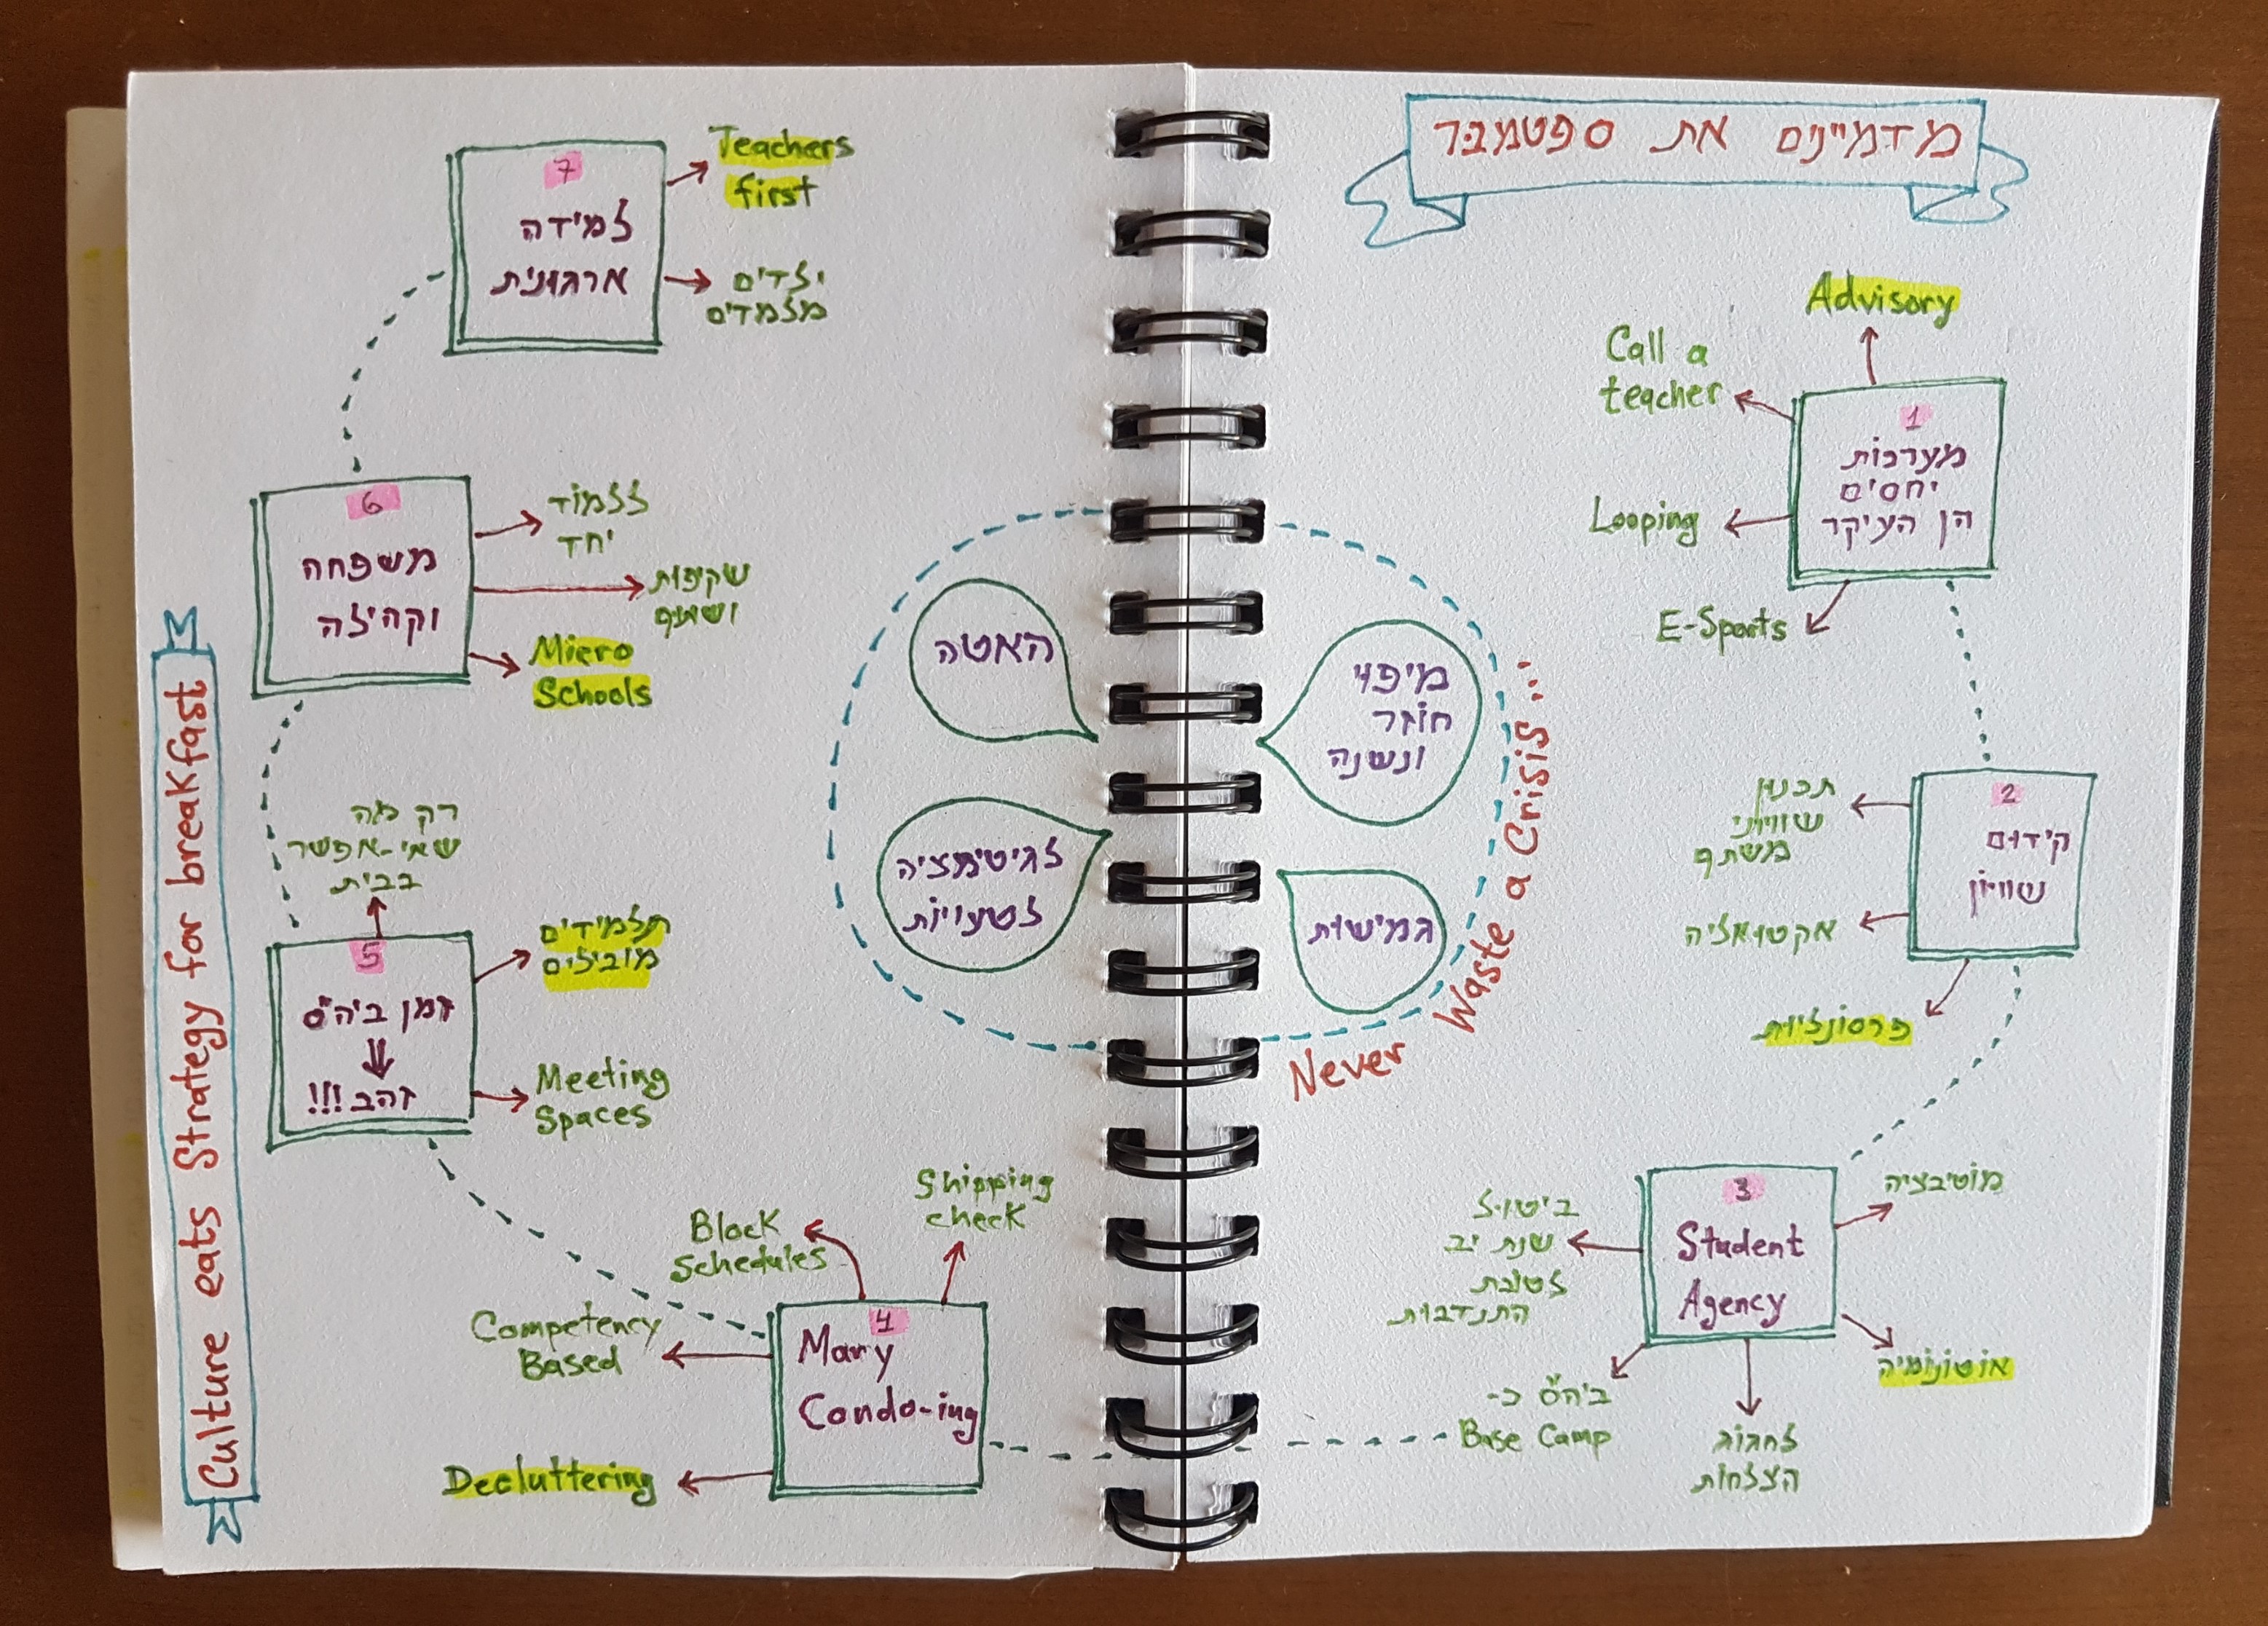 מדמיינים את ספטמבר
1
מערכות
יחסים
הן העיקר
Advisory
Call a
teacher
Looping
E-Sports
2
קידום
שוויון
תכנון
שוויוני
משתף
אקטואליה
פרסונליות
3
Student
Agency
מוטיבציה
אוטונומיה
לחגוג
הצלחות
ביה"ס כ-
Base Camp
ביטול
שנת יב
לטובת
התנדבות
4
Mary
Condo-ing
Shipping
check
Block
Schedules
Competency
Based
Decluttering
5
זמן ביה"ס
זהב!!!
רק מה
שאי-אפשר
בבית
תלמידים
מובילים
Meeting
Spaces
6
משפחה
וקהילה
ללמוד
יחד
שקיפות
ושיתוף
Micro
Schools
7
למידה
ארגונית
Teachers
first
ילדים
מלמדים
מיפוי
חוזר
ונשנה
גמישות
האטה
לגיטימציה
לטעויות
Never Waste a Crisis...
Culture eats Strategy for breakfast